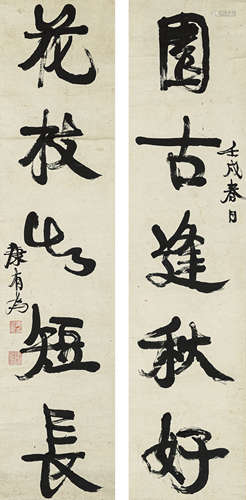 園古逢秋好
壬戌春日
花枝短長
康有為